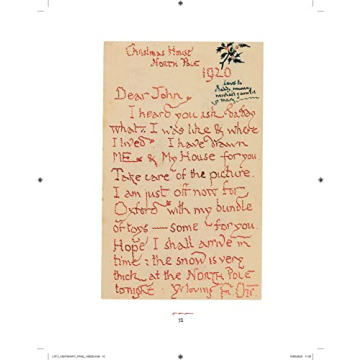 Christmas House
North Pole
1920
Love to
daddy, mummy
michael & auntie
& mary
Dear John,
I heard you ask daddy
what I was like & where
I lived. I have drawn
ME & My House for you.
Take care of the picture.
I am just off now for
Oxford with my bundle
of toys — some for you.
Hope I shall arrive in
time: the snow is very
thick at the NORTH POLE
tonight. Yr loving Fr. Chr.
12